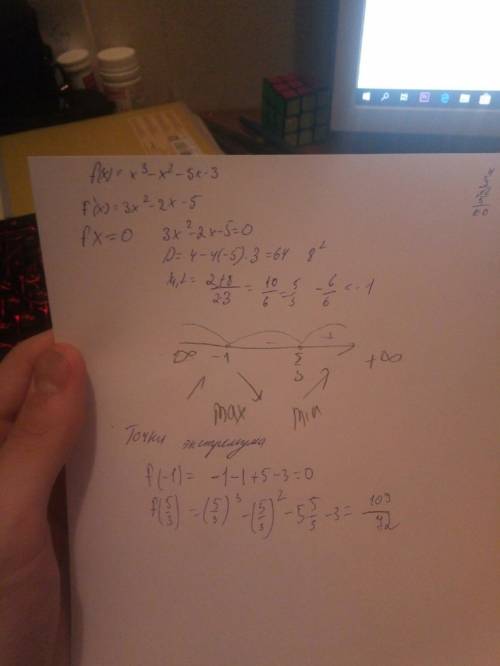 f(x) = x³ - x² - 5x - 3
f'(x) = 3x² - 2x - 5
f'x = 0 3x² - 2x - 5 = 0
D = 4 - 4(-5)·3 = 64 8²
x₁,₂ = (2+8)/(2·3) = 10/6 = 5/3 -6/6 = -1
∞ -1 - 5/3 +∞
max min
Точки экстремума
f(-1) = -1 - 1 + 5 - 3 = 0
f(5/3) = (5/3)³ - (5/3)² - 5 5/3 - 3 =